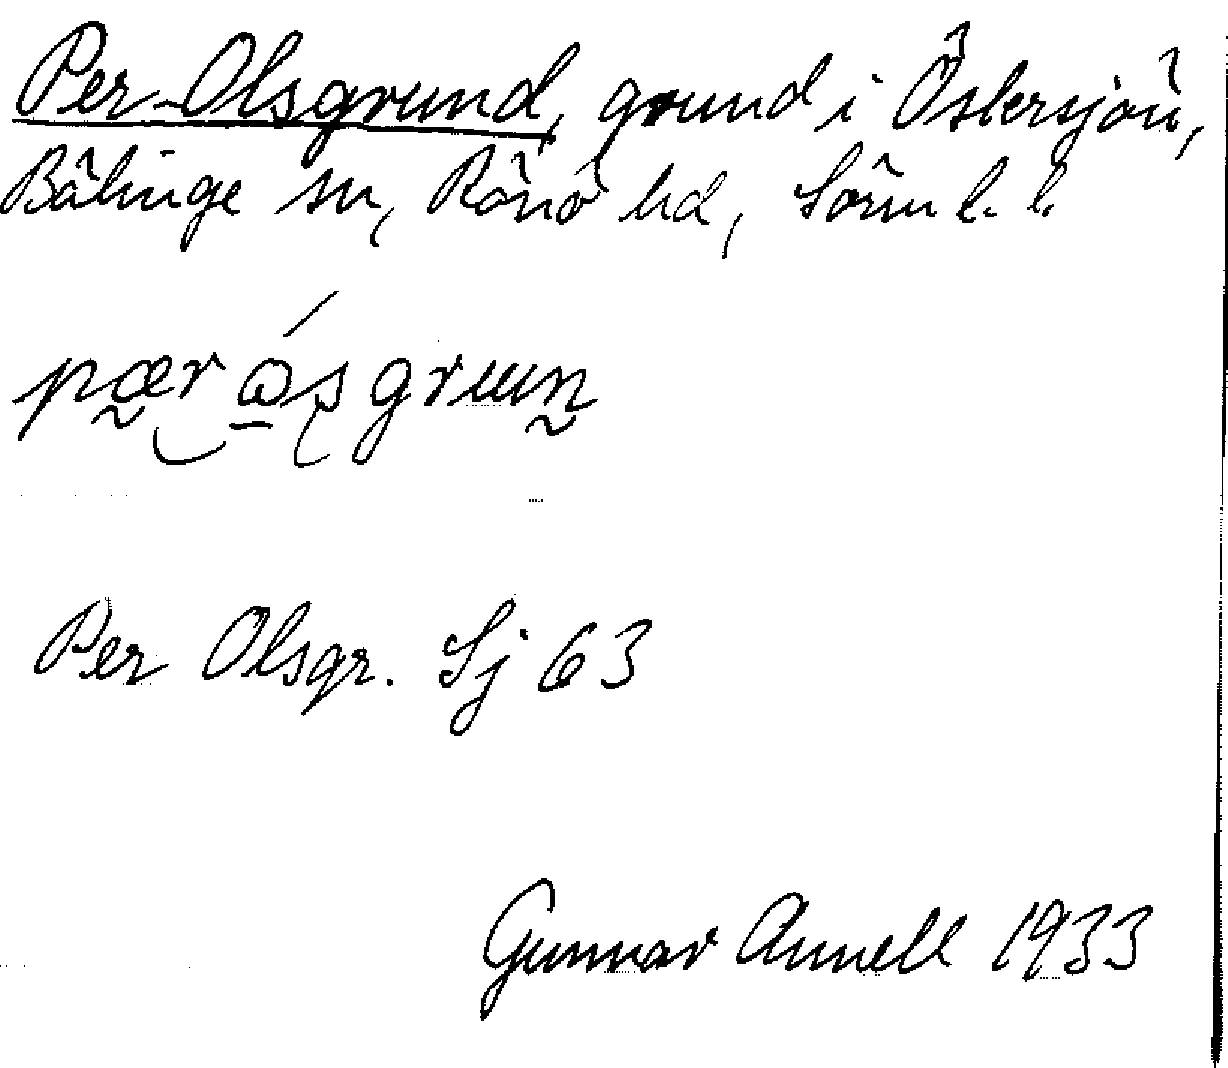 Per-Olsgrund, grund i Östersjön,
Bälinge sn, Rönö hd, Sörml. l.
pær ås grun
Per Olsgr. Sj 63
Gunnar Annell 1933